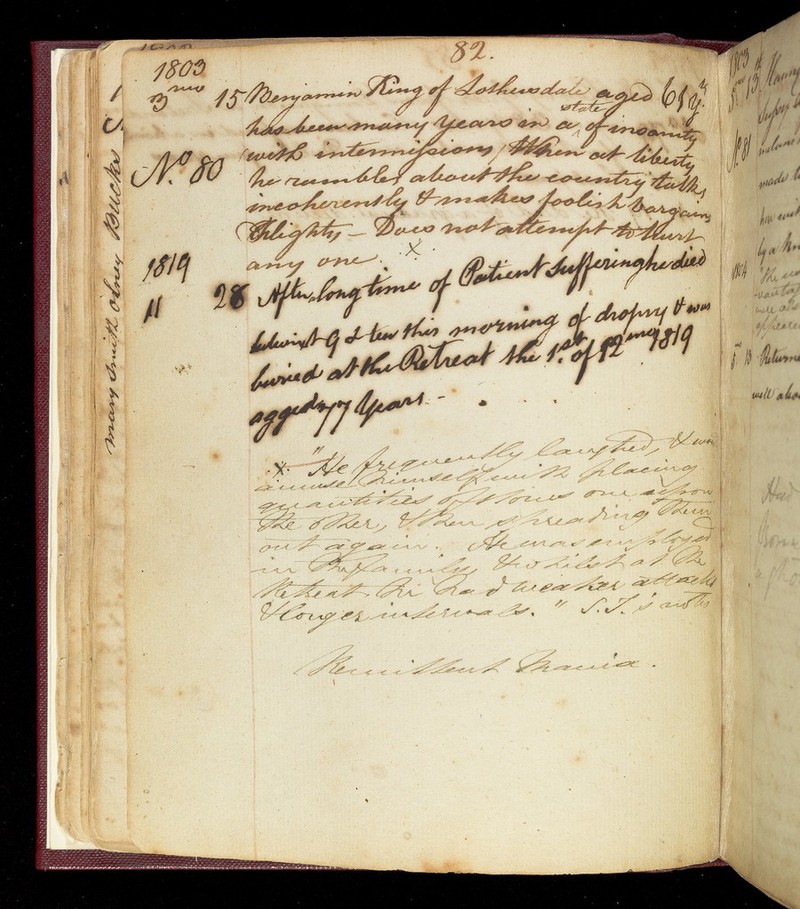 82.
1803
3mo 15 Benjamin King of Lothersdale aged 61 yr.
has been many years in a state of insanity
No. 80 with intermissions, When at liberty
he rambles about the country talks
incoherently & makes foolish bargains
Flighty - Does not attempt to hurt
any one. x
1819
11 28 After long time of Patient Suffering he died
betwixt 9 & ten this morning of dropsy & was
buried at the Retreat the 1st. of 12 mo 1819
agged 77 Years -
x. "He frequently laughed, & wd
amuse himself with placing
quantities of stones one upon
the other, & then spreading them
out again. He was employed
in the family, & whilst at the
Retreat he had weaker attacks
& longer intervals." S.T.'s notes
Remittent Mania.
Mary Smith Olney Bucks
1803
5mo 13
No. 81
made
by a
1804
5mo 13 Returned
well
Had
from